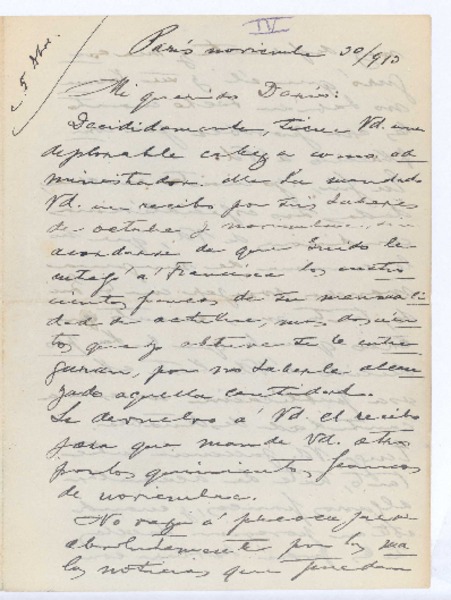 IV
c. 5 Dbre.
París noviembre 30/913
Mi querido Darío:
Decididamente, tiene Vd. una
deplorable cabeza como ad
ministrador. Me ha mandado
Vd. un recibo por sus haberes
de octubre y noviembre, sin
acordarse de que Guido le
entregó á Francisca los cuatro
cientos francos de su mensuali
dad de octubre, mas doscien
tos que yo obtuve se le entre
garan, por no haberle alcan
zado aquella cantidad.
Le devuelvo á Vd. el recibo
para que mande Vd. otro
por los quinientos francos
de noviembre.
No vaya á preocuparse
absolutamente por las ma
las noticias que puedan